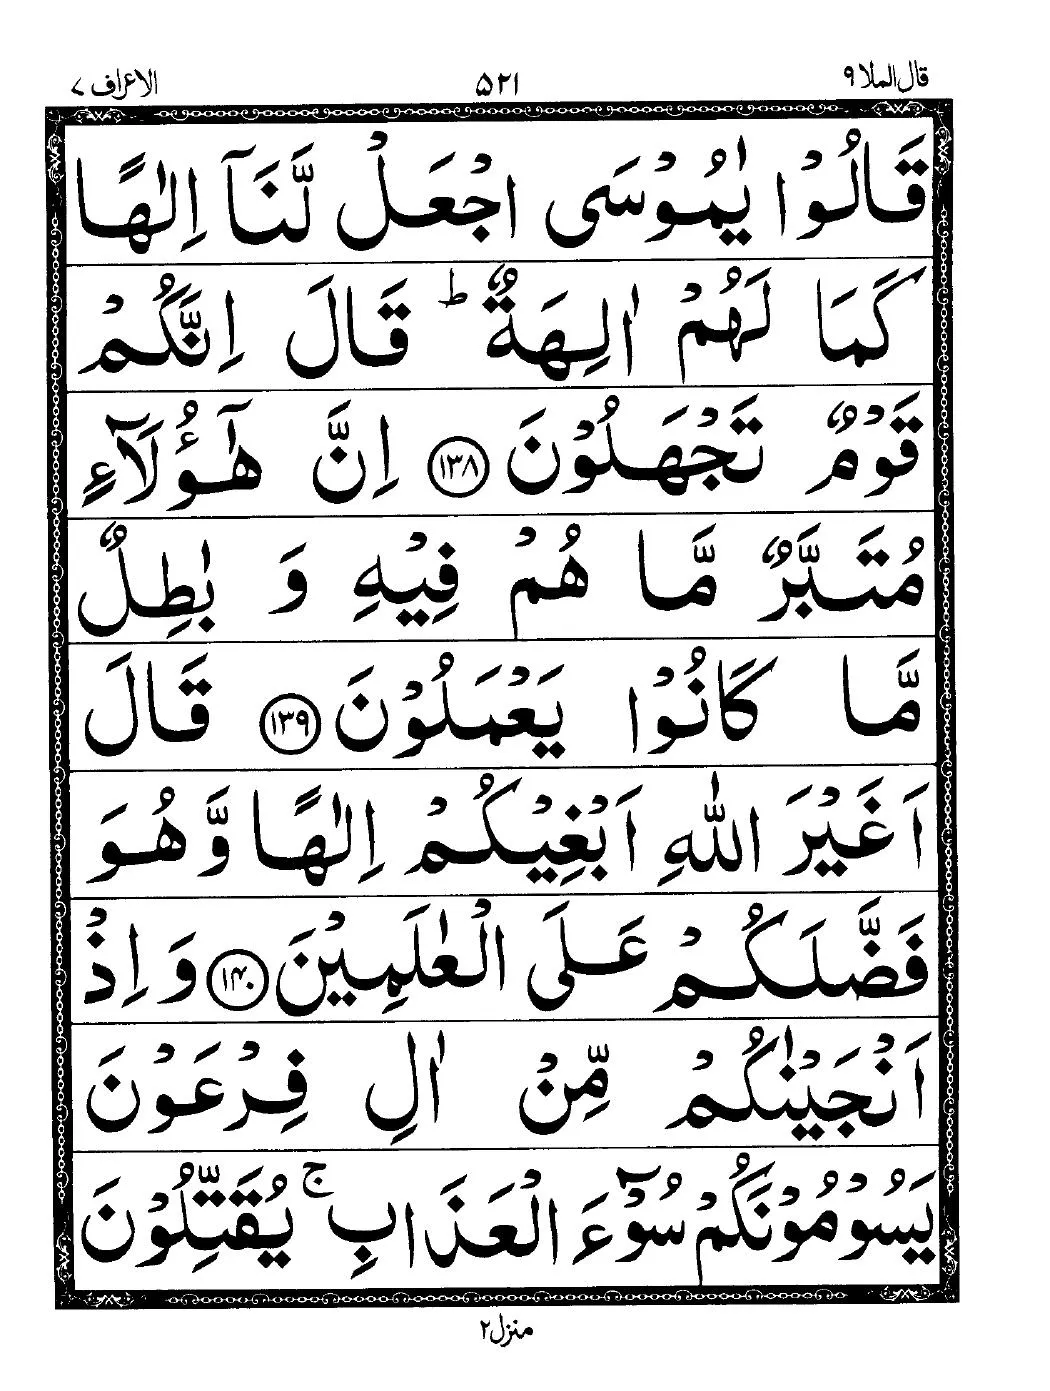 قال الملا ۹
۵۲۱
الاعراف ۷
قَالُوْا يٰمُوْسَى اجْعَلْ لَّنَآ اِلٰهًا
كَمَا لَهُمْ اٰلِهَةٌ ؕ قَالَ اِنَّكُمْ
قَوْمٌ تَجْهَلُوْنَ ۱۳۸ اِنَّ هٰٓؤُلَآءِ
مُتَبَّرٌ مَّا هُمْ فِيْهِ وَ بٰطِلٌ
مَّا كَانُوْا يَعْمَلُوْنَ ۱۳۹ قَالَ
اَغَيْرَ اللّٰهِ اَبْغِيْكُمْ اِلٰهًا وَّهُوَ
فَضَّلَكُمْ عَلَى الْعٰلَمِيْنَ ۱۴۰ وَ اِذْ
اَنْجَيْنٰكُمْ مِّنْ اٰلِ فِرْعَوْنَ
يَسُوْمُوْنَكُمْ سُوْٓءَ الْعَذَابِ ۚ يُقَتِّلُوْنَ
منزل ۲